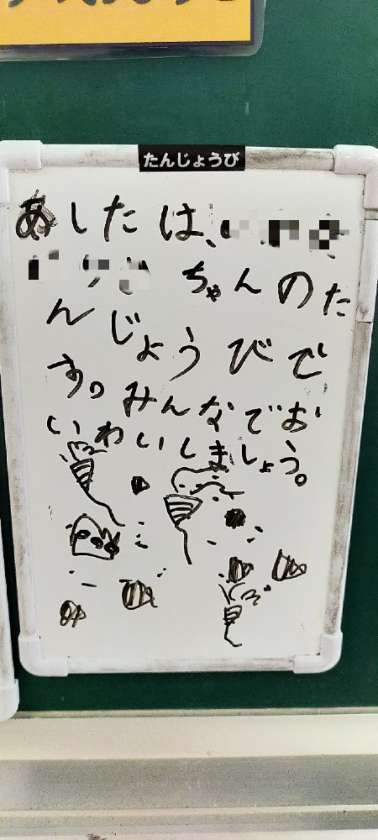 たんじょうび
あしたは、
ちゃんのた
んじょうびで
す。みんなでお
いわいしましょう。